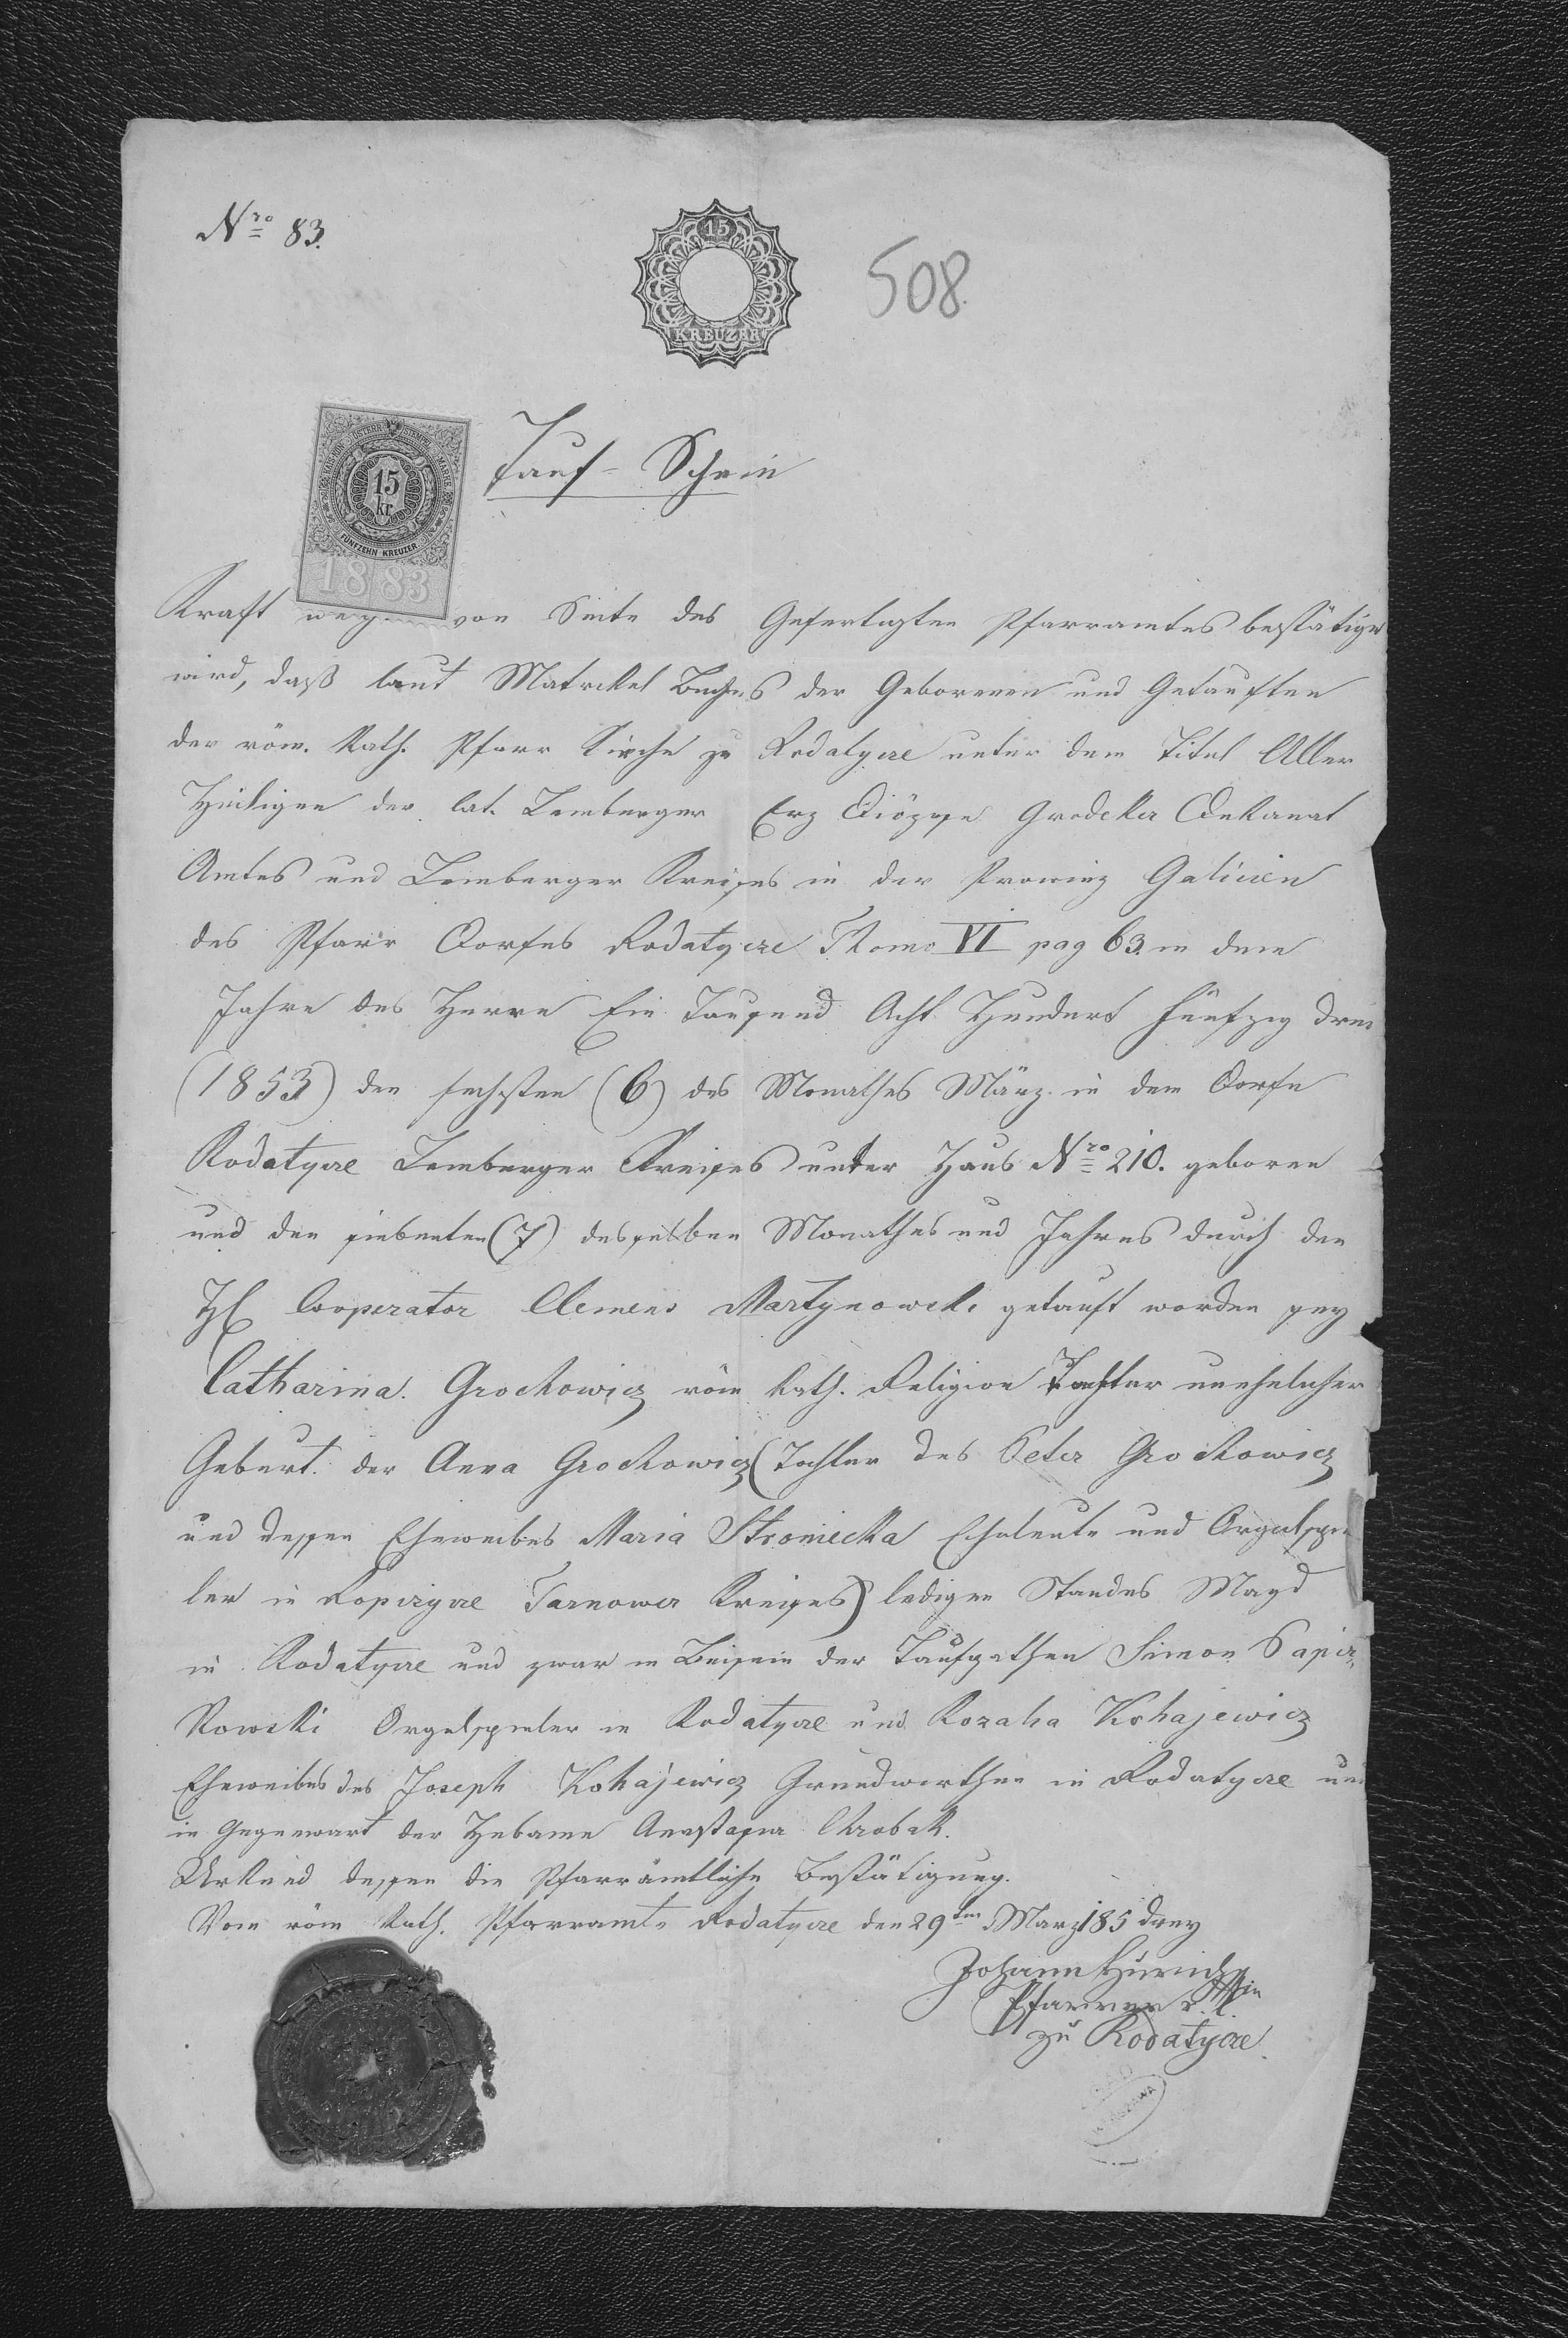 Nro 83.
15
KREUZER
508
15
kr
FÜNFZEHN KREUZER
1883
Tauf-Schein
Kraft von Seite des Gefertigten Pfarramtes bestätiget
wird, daß laut Matrikel Buches der Geborenen und Getauften
der röm. Kath. Pfarr Kirche zu Rodatycze unter dem Titel Aller
Heiligen der lat. Lemberger Erz Diözese Grodeker Dekanat
Amtes und Lemberger Kreises in der Prowinz Galicien
des Pfarr Dorfes Rodatycze Thomo VI pag 63. in dem
Jahre des Herrn Ein Tausend Acht Hundert fünfzig drei
(1853) den sechsten (6) des Monathes März in dem Dorfe
Rodatycze Lemberger Kreises unter Haus Nro 210. geboren
und den siebenten (7) desselben Monathes und Jahres durch den
H Cooperator Clemens Martynowski getauft worden sey
Catharina Grochowicz röm Kath. Religion Tochter unehelicher
Geburt. der Anna Grochowicz (Tochter des Peter Grochowicz
und dessen Eheweibes Maria Stroniecka Eheleute und Orgelspie
ler in Tarnower Kreises) ledigen Standes Magd
in Rodatycze und zwar in Beisein der Taufpathen Simon Papir
kowski Orgelspieler in Rodatycze und Rozalia Kohajewicz
Eheweibes des Joseph Kohajewicz Grundwirthen in Rodatycze und
in Gegenwart der Hebame Anastasia Chrobak.
Urkund dessen die Pfarrämtliche Bestätigung.
Vom röm Kath. Pfarramte Rodatycze den 29ten Marz 185 drey
Johann
Pfarrer r. l.
zu Rodatycze